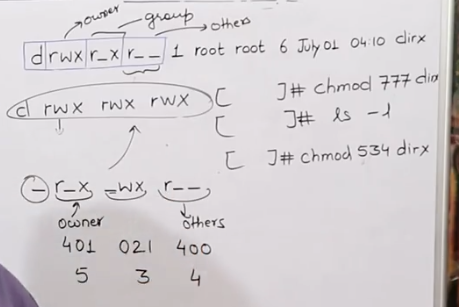 owner group others
drwx r_x r__ 1 root root 6 July 01 04:10 dirx
d rwx rwx rwx [ ]# chmod 777 dir
[ ]# ls -l
[ ]# chmod 534 dirx
- r_x _wx r--
owner others
401 021 400
5 3 4